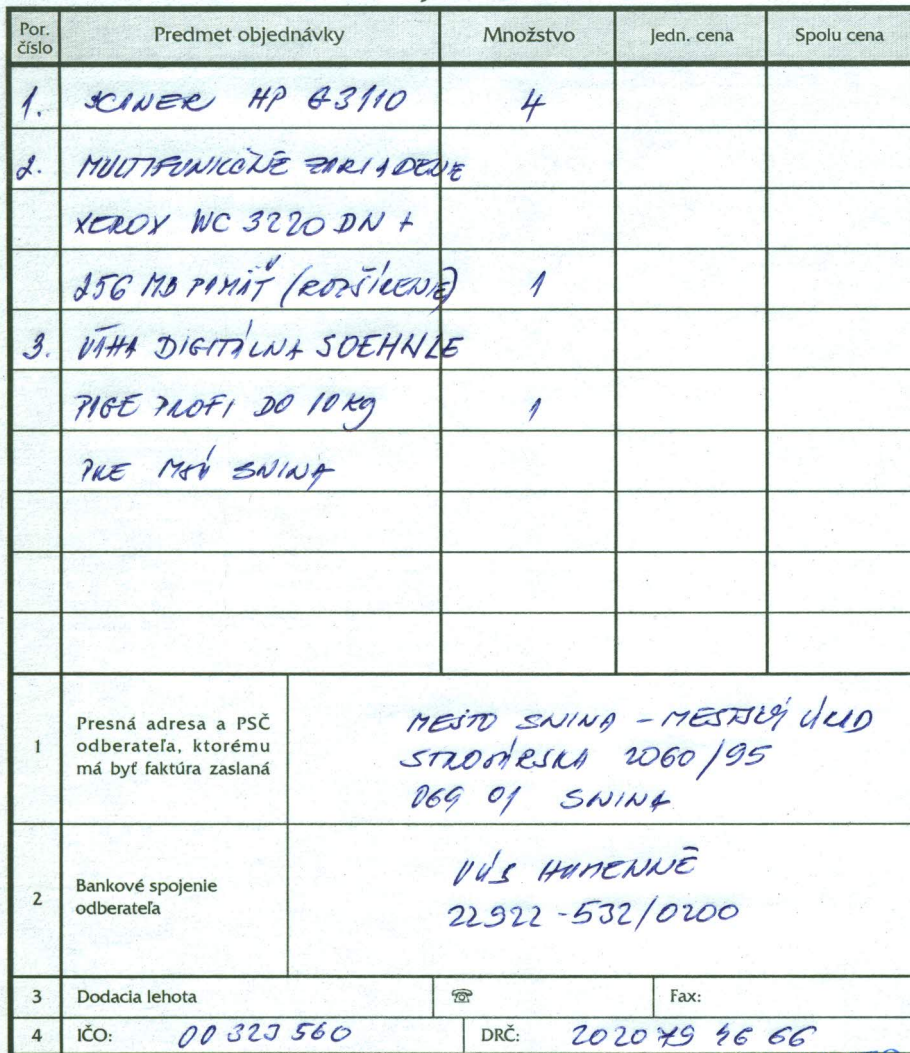 Por. číslo Predmet objednávky Množstvo Jedn. cena Spolu cena
1. SCANER HP G3110 4
2. MULTIFUNKČNÉ ZARIADENIE
XEROX WC 3220 DN +
256 MB PAMÄŤ (ROZŠÍRENIE) 1
3. VÁHA DIGITÁLNA SOEHNLE
PAGE PROFI DO 10 kg 1
PRE MSÚ SNINA
1 Presná adresa a PSČ odberateľa, ktorému má byť faktúra zaslaná
MESTO SNINA - MESTSKÝ ÚRAD
STROJÁRSKA 2060/95
069 01 SNINA
2 Bankové spojenie odberateľa
VÚB HUMENNÉ
22922-532/0200
3 Dodacia lehota ☎ Fax:
4 IČO: 00 323 560 DRČ: 202079 46 66